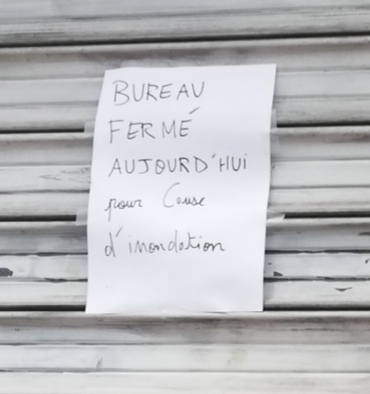 BUREAU
FERMÉ
AUJOURD'HUi
pour Cause
d'inondation